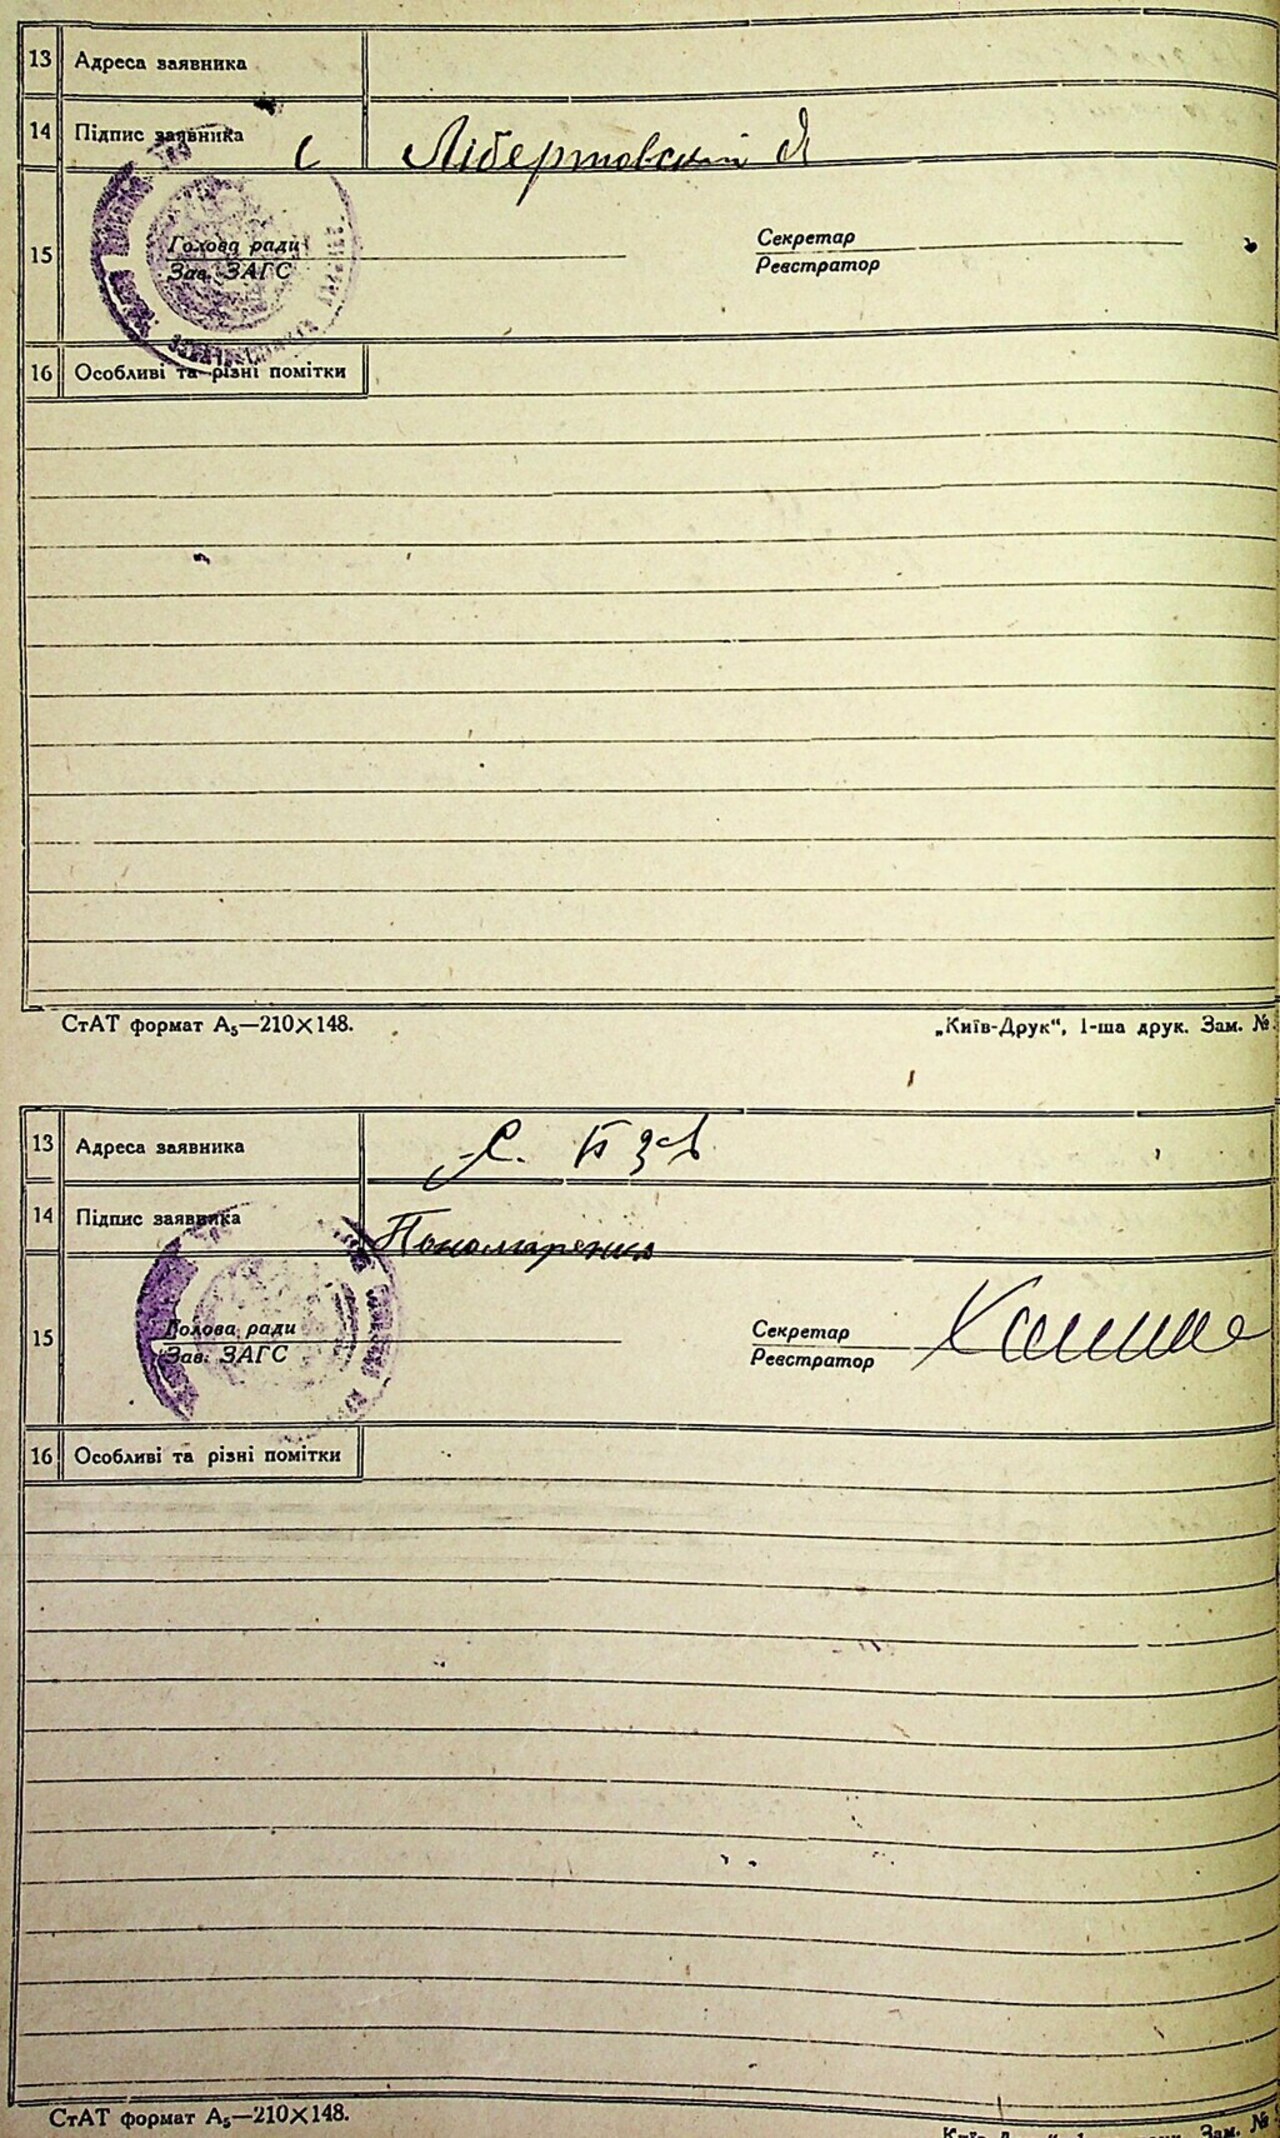 13 Адреса заявника
14 Підпис заявника Лібертовский Я
15 Голова ради Секретар
Зав. ЗАГС Реєстратор
16 Особливі та різні помітки
СтАТ формат А₅—210×148. „Київ-Друк“, 1-ша друк. Зам. №
13 Адреса заявника с. Бзів
14 Підпис заявника Пономаренко
15 Голова ради Секретар
Зав. ЗАГС Реєстратор
16 Особливі та різні помітки
СтАТ формат А₅—210×148. Зам. №